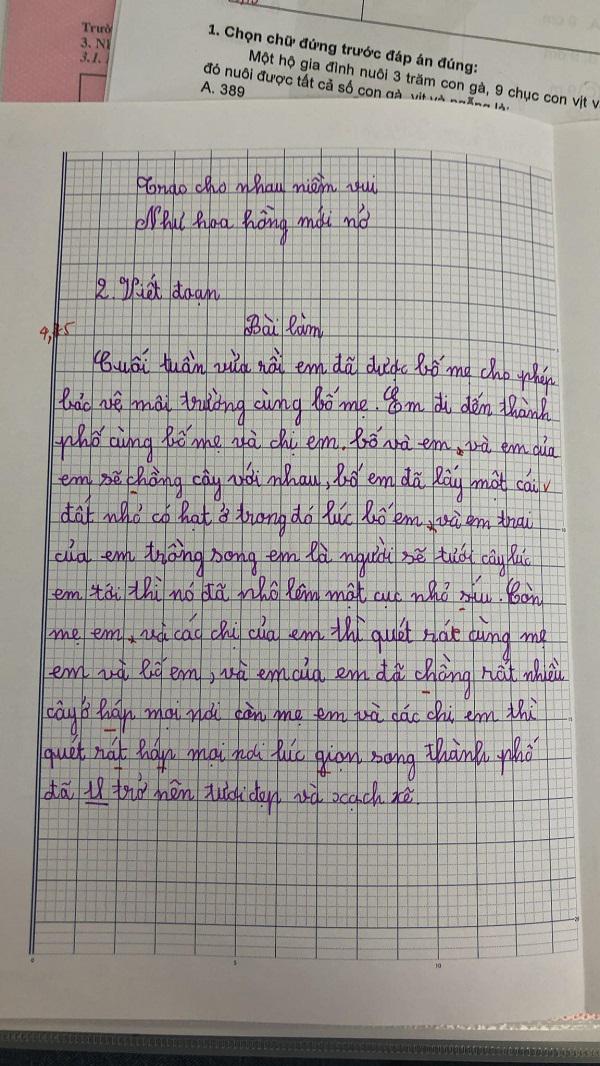 Trườ
3. Nh
3.1.
1. Chọn chữ đứng trước đáp án đúng:
Một hộ gia đình nuôi 3 trăm con gà, 9 chục con vịt v
đó nuôi được tất cả số con gà, vịt và ngỗng là:
A. 389
Trao cho nhau niềm vui
Như hoa hồng mới nở
2. Viết đoạn
Bài làm
Cuối tuần vừa rồi em đã được bố mẹ cho phép
bảo vệ môi trường cùng bố mẹ. Em đi đến thành
phố cùng bố mẹ và chị em. bố và em, và em của
em sẽ chồng cây với nhau, bố em đã lấy một cái
đất nhỏ có hạt ở trong đó lúc bố em, và em trai
của em trồng song em là người sẽ tưới cây lúc
em tới thì nó đã nhô lên một cục nhỏ síu. Còn
mẹ em, và các chị của em thì quét rát cùng mẹ
em và bố em, và em của em đã chồng rất nhiều
cây ở háp mọi nơi còn mẹ em và các chị em thì
quét rát háp mọi nơi lúc gion song thành phố
đã trở nên tươi đẹp và xạch xẽ.
0 5 10